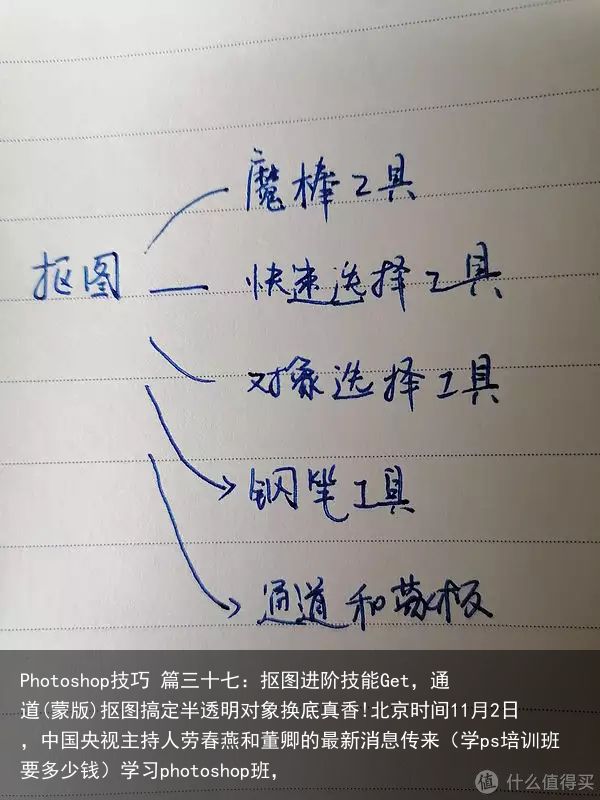 魔棒工具
抠图
快速选择工具
对象选择工具
钢笔工具
通道和蒙板
Photoshop技巧 篇三十七：抠图进阶技能Get，通
道(蒙版)抠图搞定半透明对象换底真香!北京时间11月2日
，中国央视主持人劳春燕和董卿的最新消息传来（学ps培训班
要多少钱）学习photoshop班，
值 什么值得买